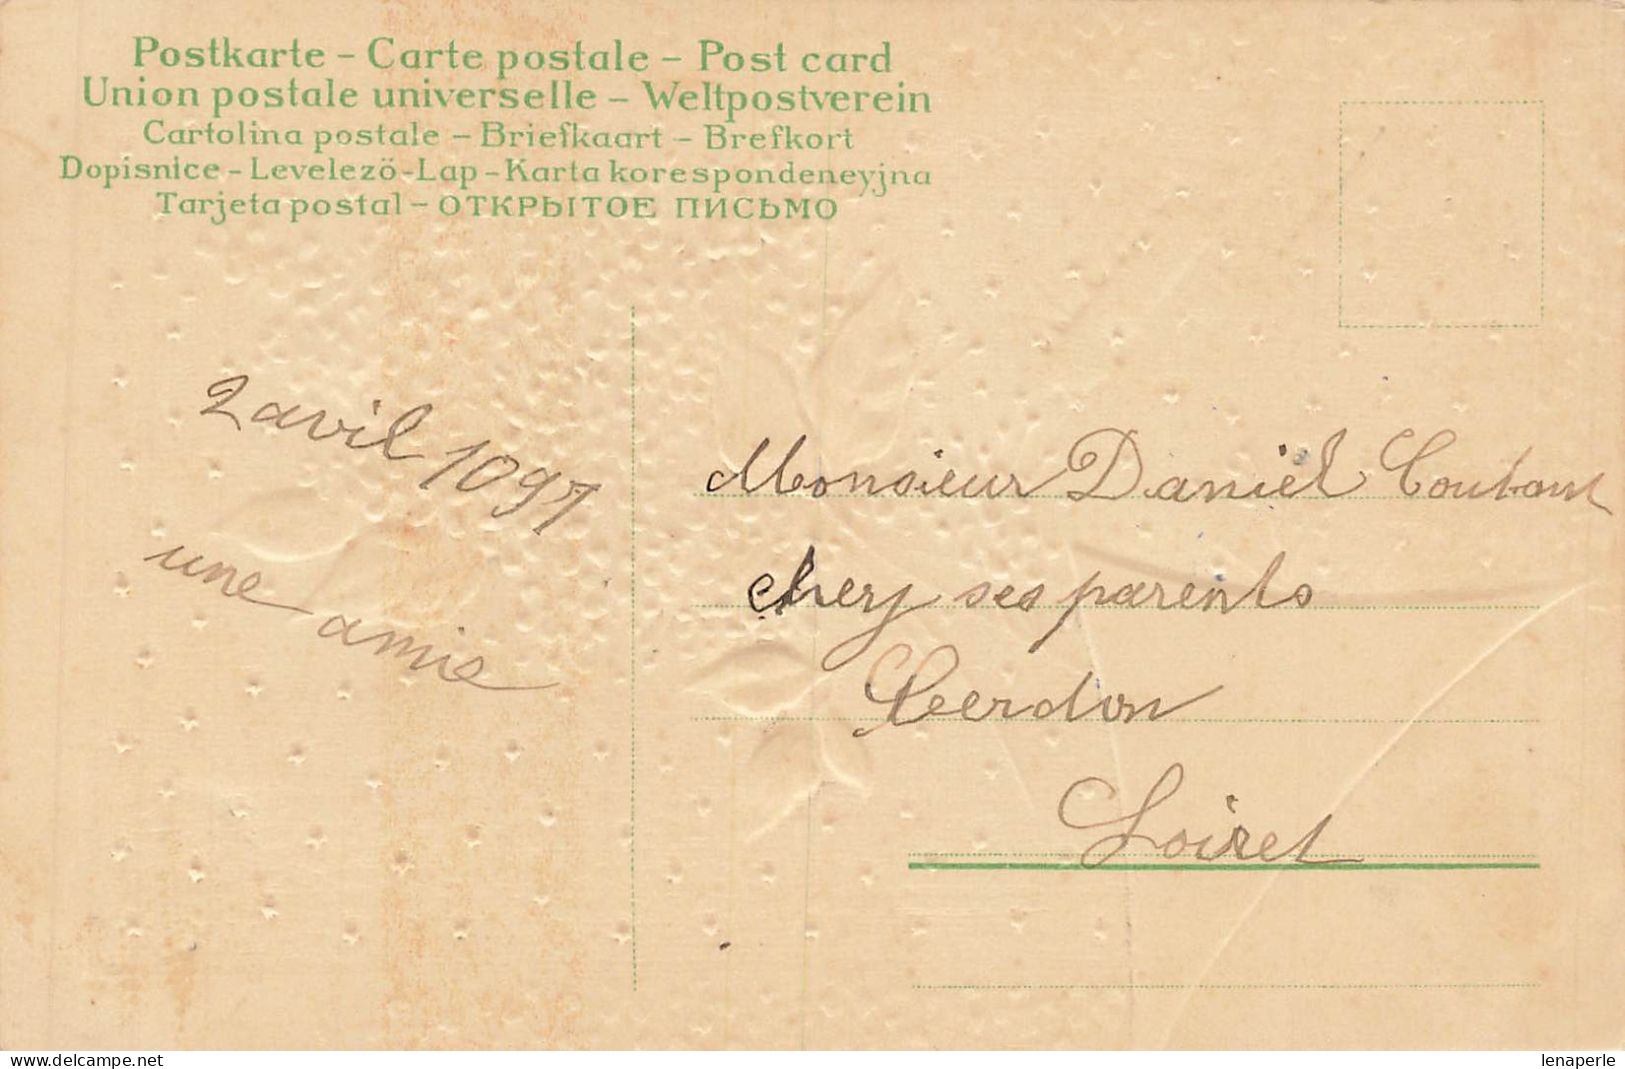 Postkarte - Carte postale - Post card
Union postale universelle - Weltpostverein
Cartolina postale - Briefkaart - Brefkort
Dopisnice - Levelezö-Lap - Karta korespondeneyjna
Tarjeta postal - ОТКРЫТОЕ ПИСЬМО
2 avil 1097
une amie
Monsieur Daniel Coutant
chery ses parents
Cerdon
Loiret
www.delcampe.net
lenaperle